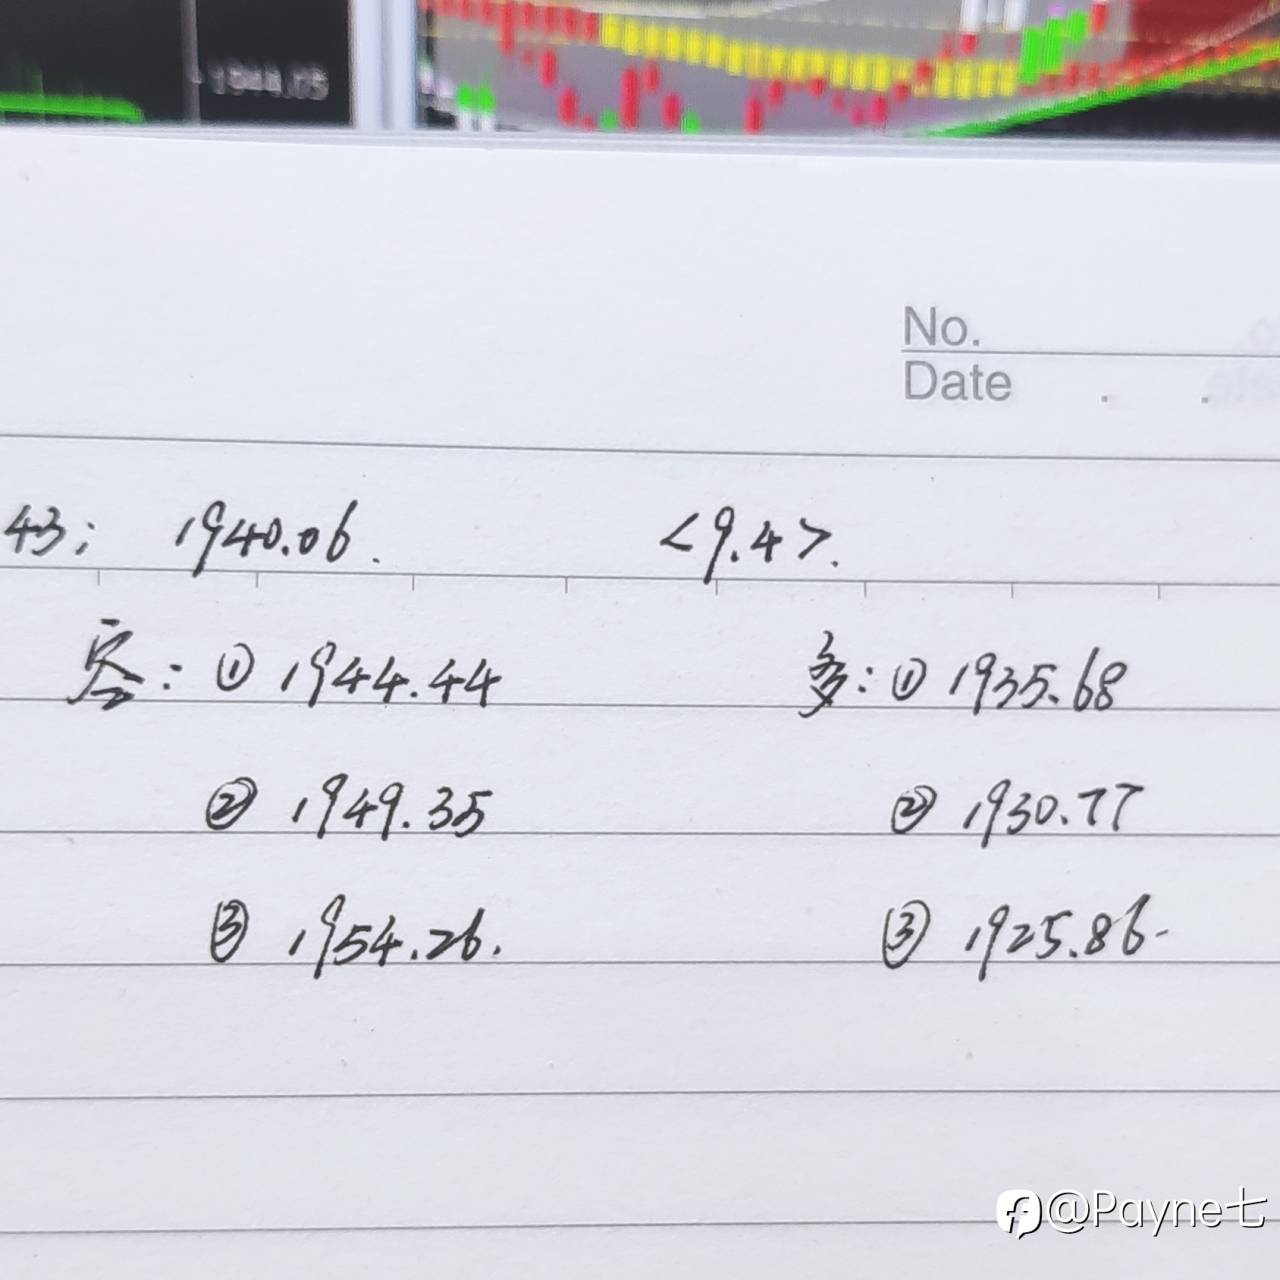 No.
Date . .
43; 1940.06. <9.4>.
空: ① 1944.44 多: ① 1935.68
② 1949.35 ② 1930.77
③ 1954.26. ③ 1925.86.
@Payne七